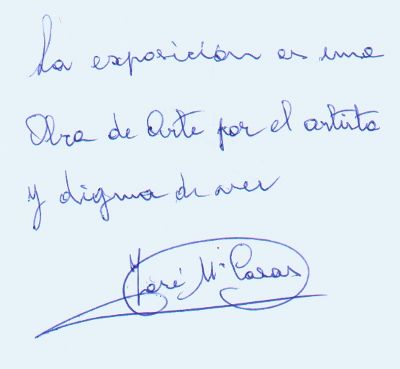 La exposición es una
Obra de Arte por el artista
y digna de ver
José Mª Casas